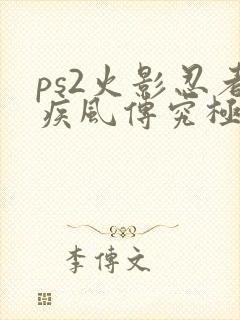 ps2火影忍者
疾風傳究極
李傳文